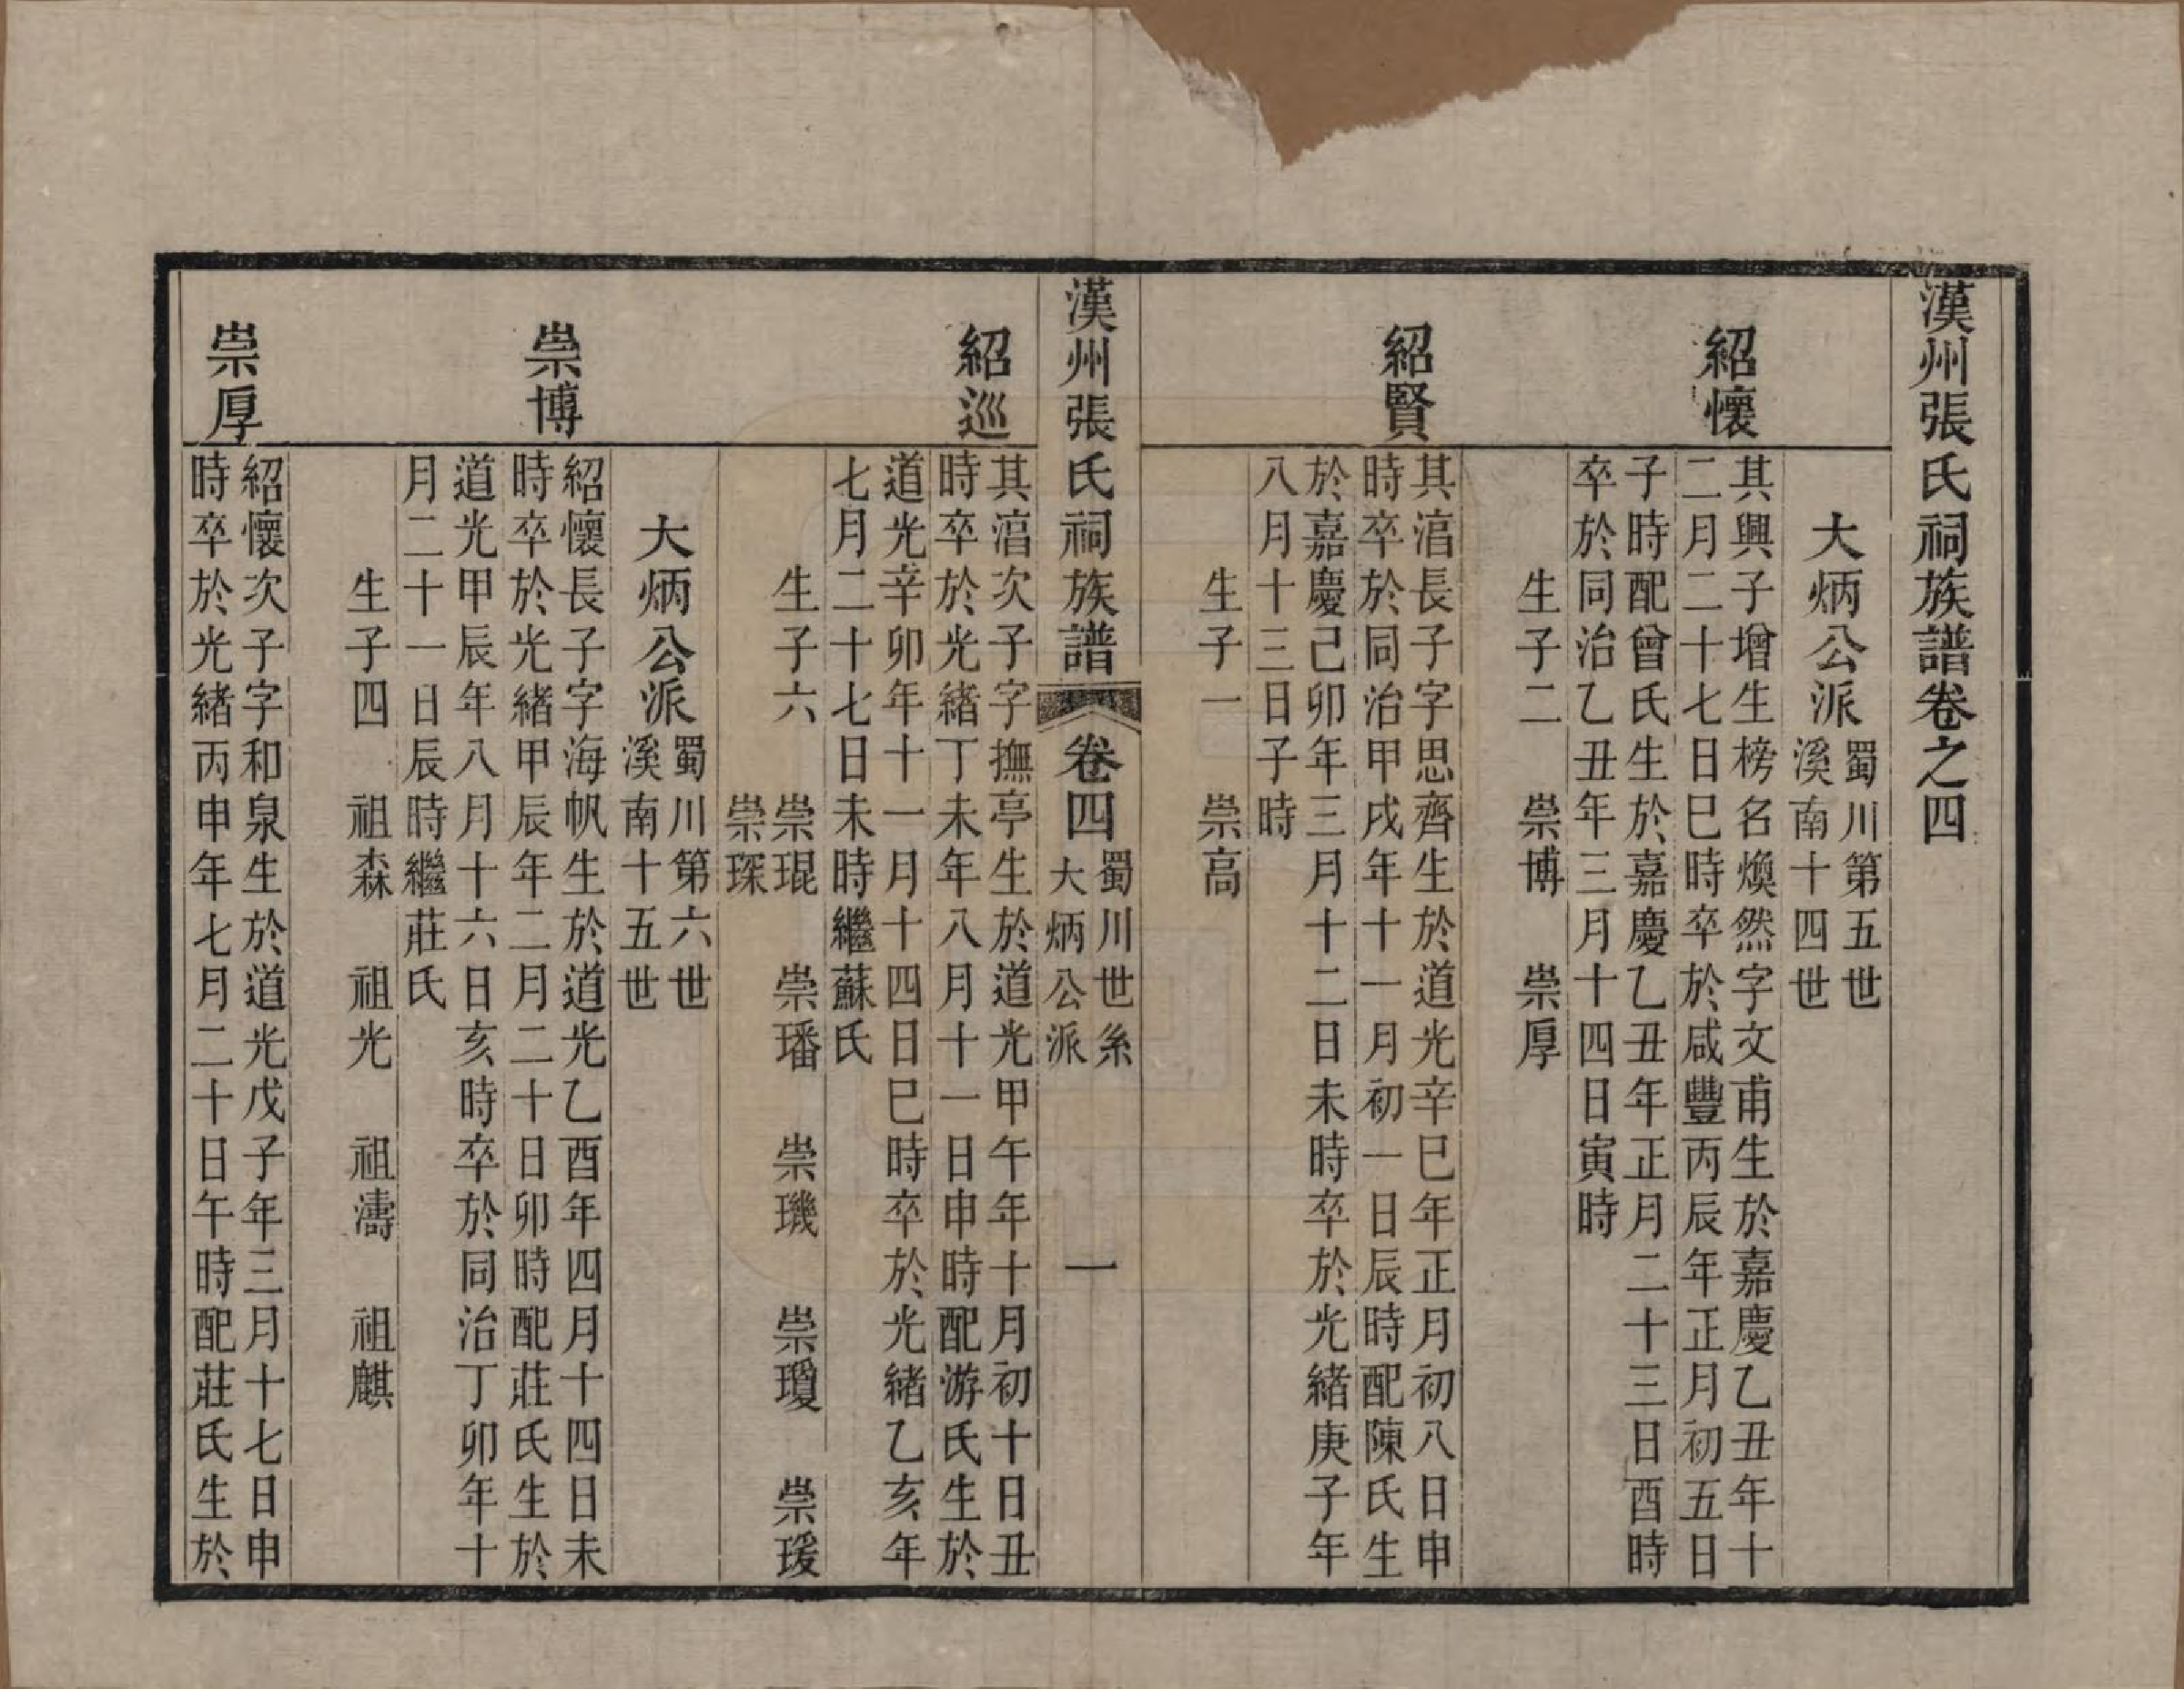 漢州張氏祠族譜卷之四
大炳公派
蜀川第五世
溪南十四世
紹懷
其興子增生榜名煥然字文甫生於嘉慶乙丑年十
二月二十七日巳時卒於咸豐丙辰年正月初五日
子時配曾氏生於嘉慶乙丑年正月二十三日酉時
卒於同治乙丑年三月十四日寅時
生子二 崇博 崇厚
紹賢
其涫長子字思齊生於道光辛巳年正月初八日申
時卒於同治甲戌年十一月初一日辰時配陳氏生
於嘉慶己卯年三月十二日未時卒於光緒庚子年
八月十三日子時
生子一 崇高
漢州張氏祠族譜 卷四
蜀川世系
大炳公派
一
紹巡
其涫次子字撫亭生於道光甲午年十月初十日丑
時卒於光緒丁未年八月十一日申時配游氏生於
道光辛卯年十一月十四日巳時卒於光緒乙亥年
七月二十七日未時繼蘇氏
生子六 崇琨 崇璠 崇璣 崇瓊 崇瑗
崇琛
大炳公派
蜀川第六世
溪南十五世
崇博
紹懷長子字海帆生於道光乙酉年四月十四日未
時卒於光緒甲辰年二月二十日卯時配莊氏生於
道光甲辰年八月十六日亥時卒於同治丁卯年十
月二十一日辰時繼莊氏
生子四 祖森 祖光 祖濤 祖麒
崇厚
紹懷次子字和泉生於道光戊子年三月十七日申
時卒於光緒丙申年七月二十日午時配莊氏生於